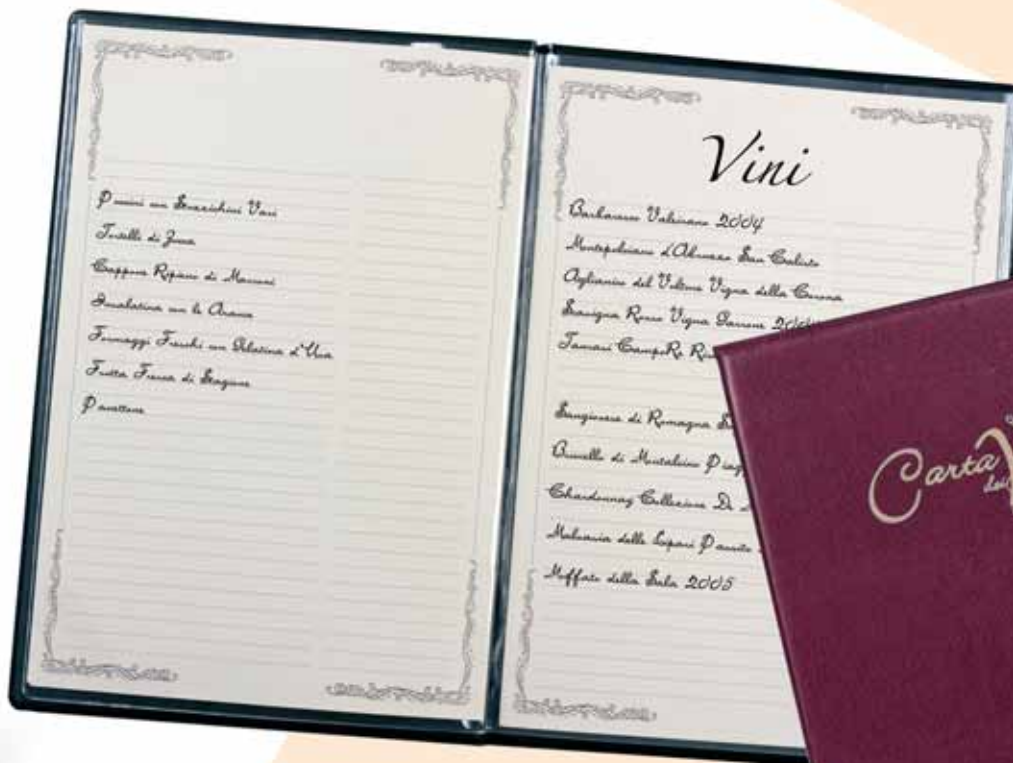 Panini con Stuzzichini Vari
Tortelli di Zucca
Cappone Ripieno di Marroni
Insalatina con le Arance
Formaggi Freschi con Gelatina d'Uva
Frutta Fresca di Stagione
Panettone
Vini
Barbaresco Valeirano 2004
Montepulciano d'Abruzzo San Calisto
Aglianico del Vulture Vigna della Corona
Rosso Vigna
Sangiovese di Romagna
Brunello di Montalcino
Chardonnay Collezione De
Malvasia delle Lipari Passito
Muffato della Sala 2005
Carta
dei